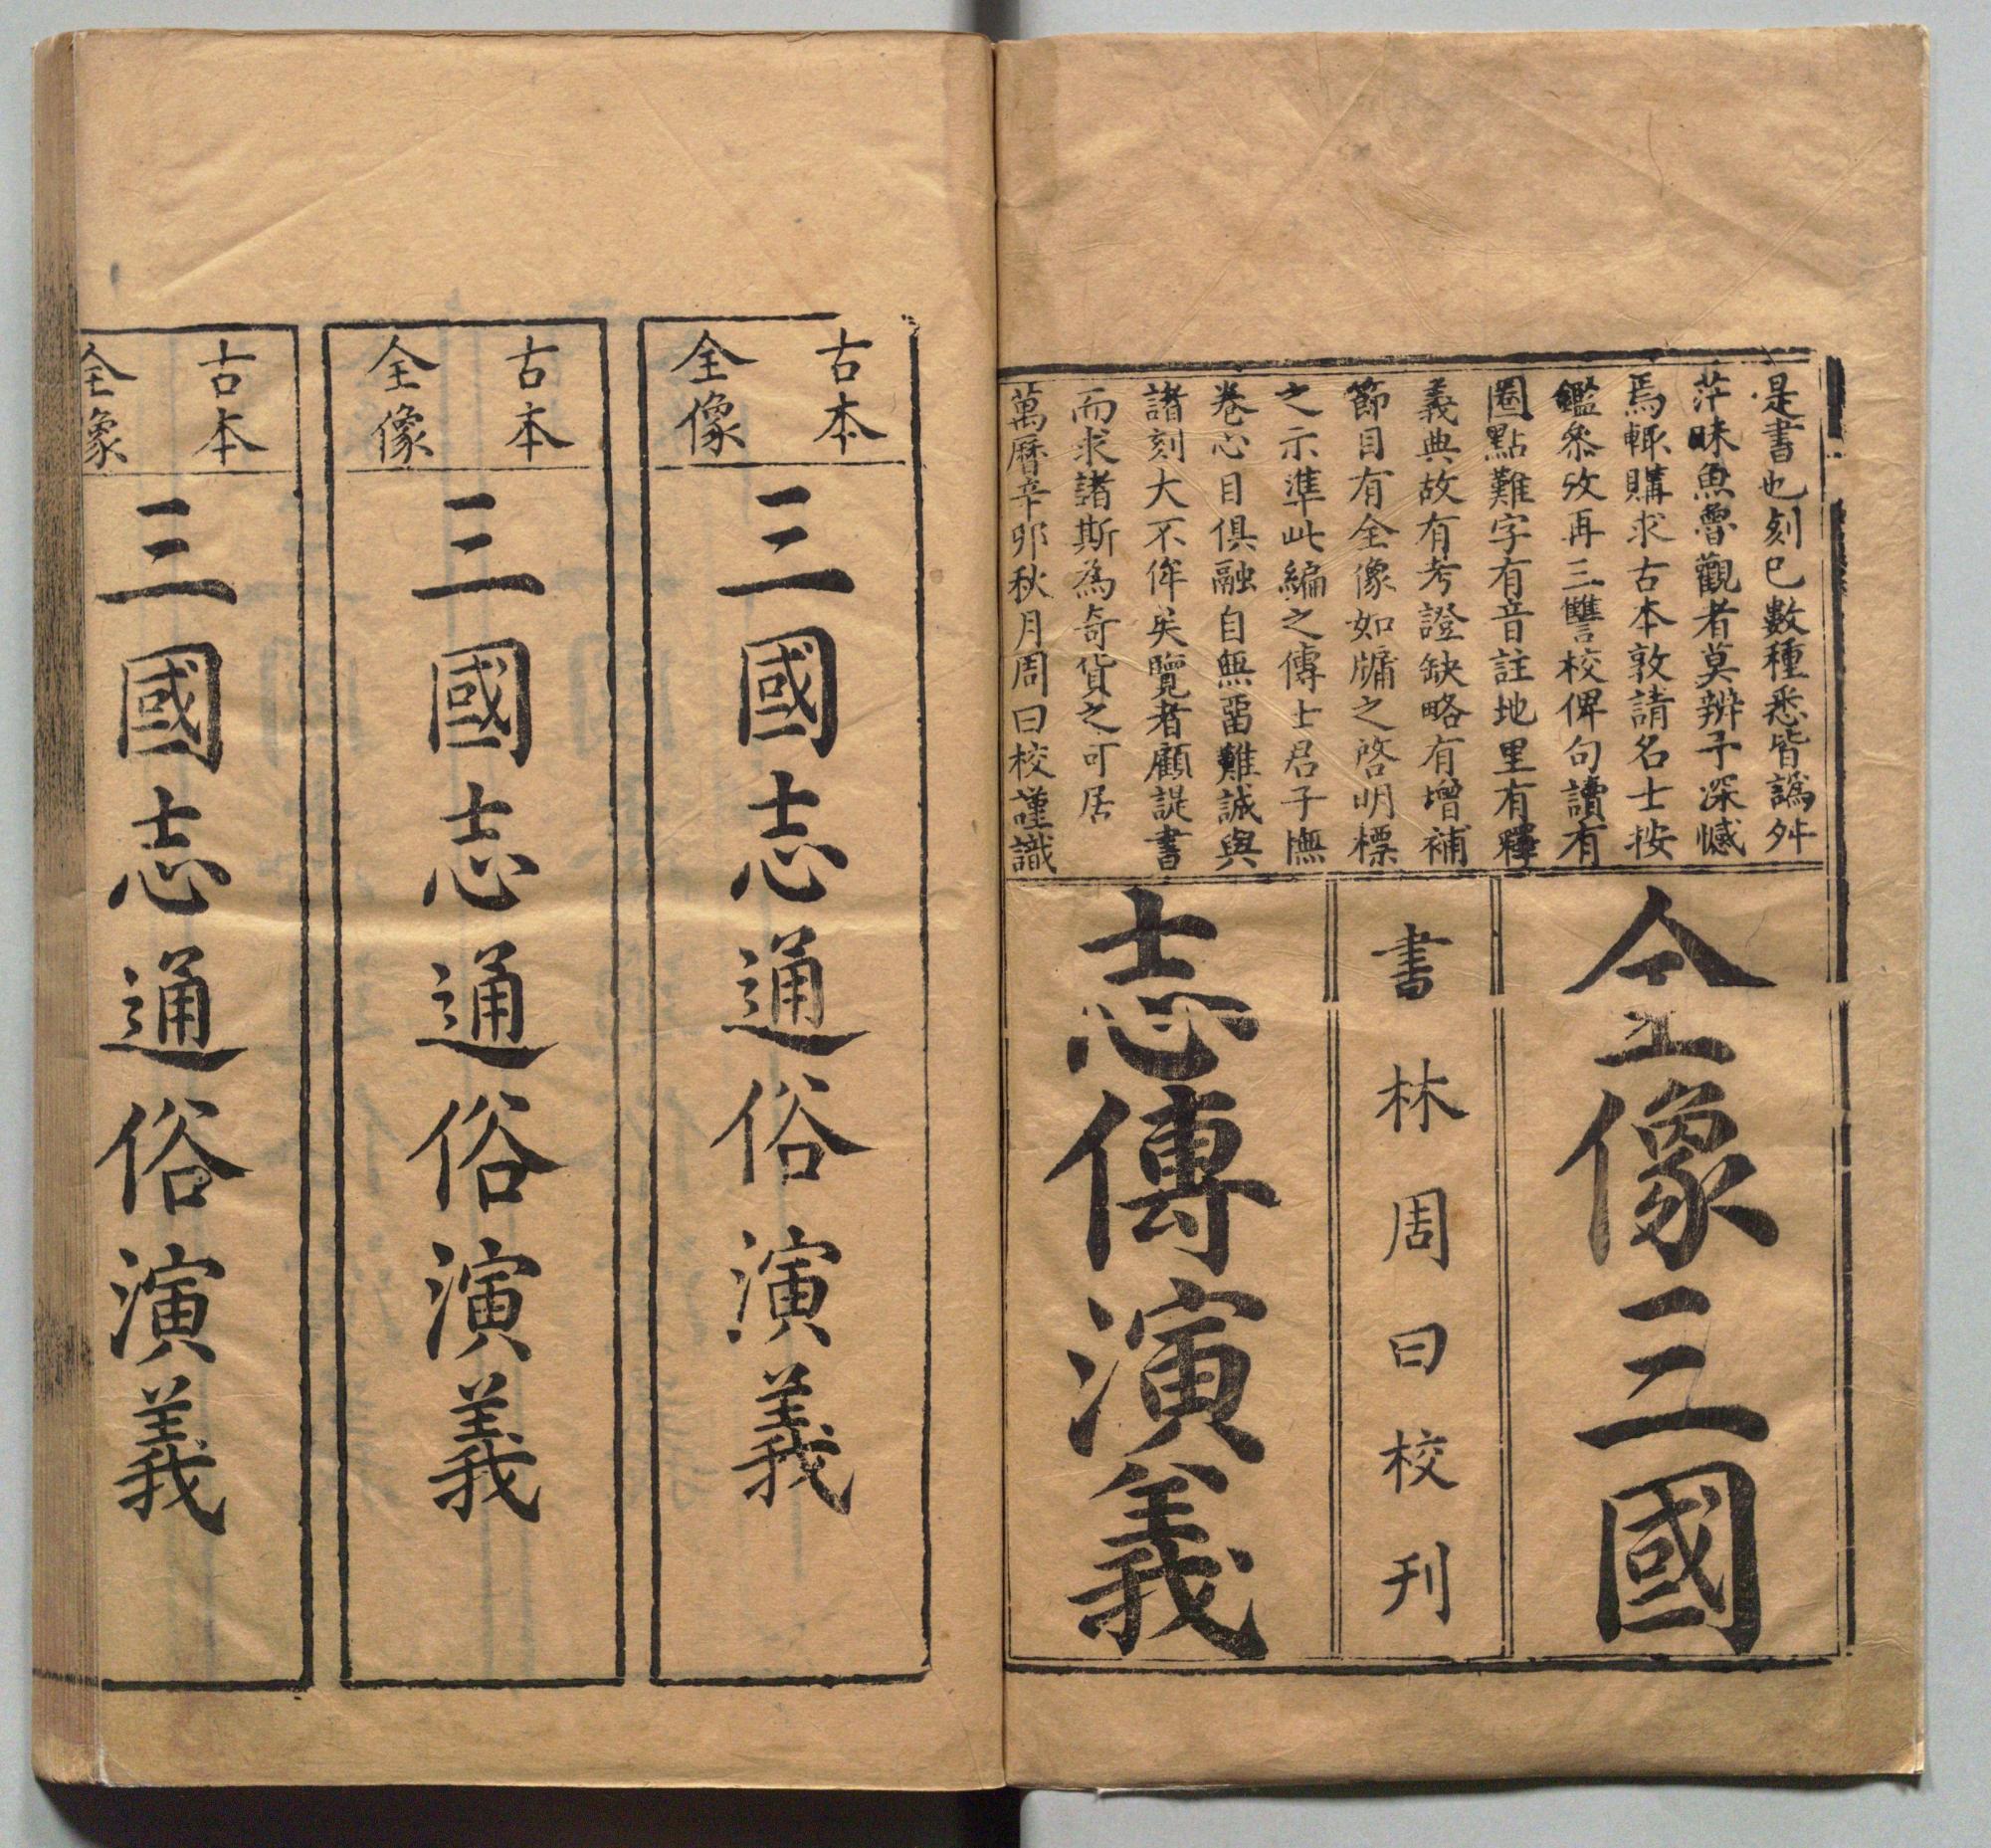 是書也刻已數種悉皆譌舛
茫昧魚魯觀者莫辨予深憾
焉輒購求古本敦請名士按
鑑參攷再三讐校俾句讀有
圈點難字有音註地里有釋
義典故有考證缺略有增補
節目有全像如牖之啓明標
之示準此編之傳士君子撫
卷心目俱融自無畱難誠與
諸刻大不侔矣覽者顧諟書
而求諸斯為奇貨之可居
萬曆辛卯秋月周曰校謹識
全像三國
書林周曰校刊
志傳演義
古本
全像
三國志通俗演義
古本
全像
三國志通俗演義
古本
全像
三國志通俗演義